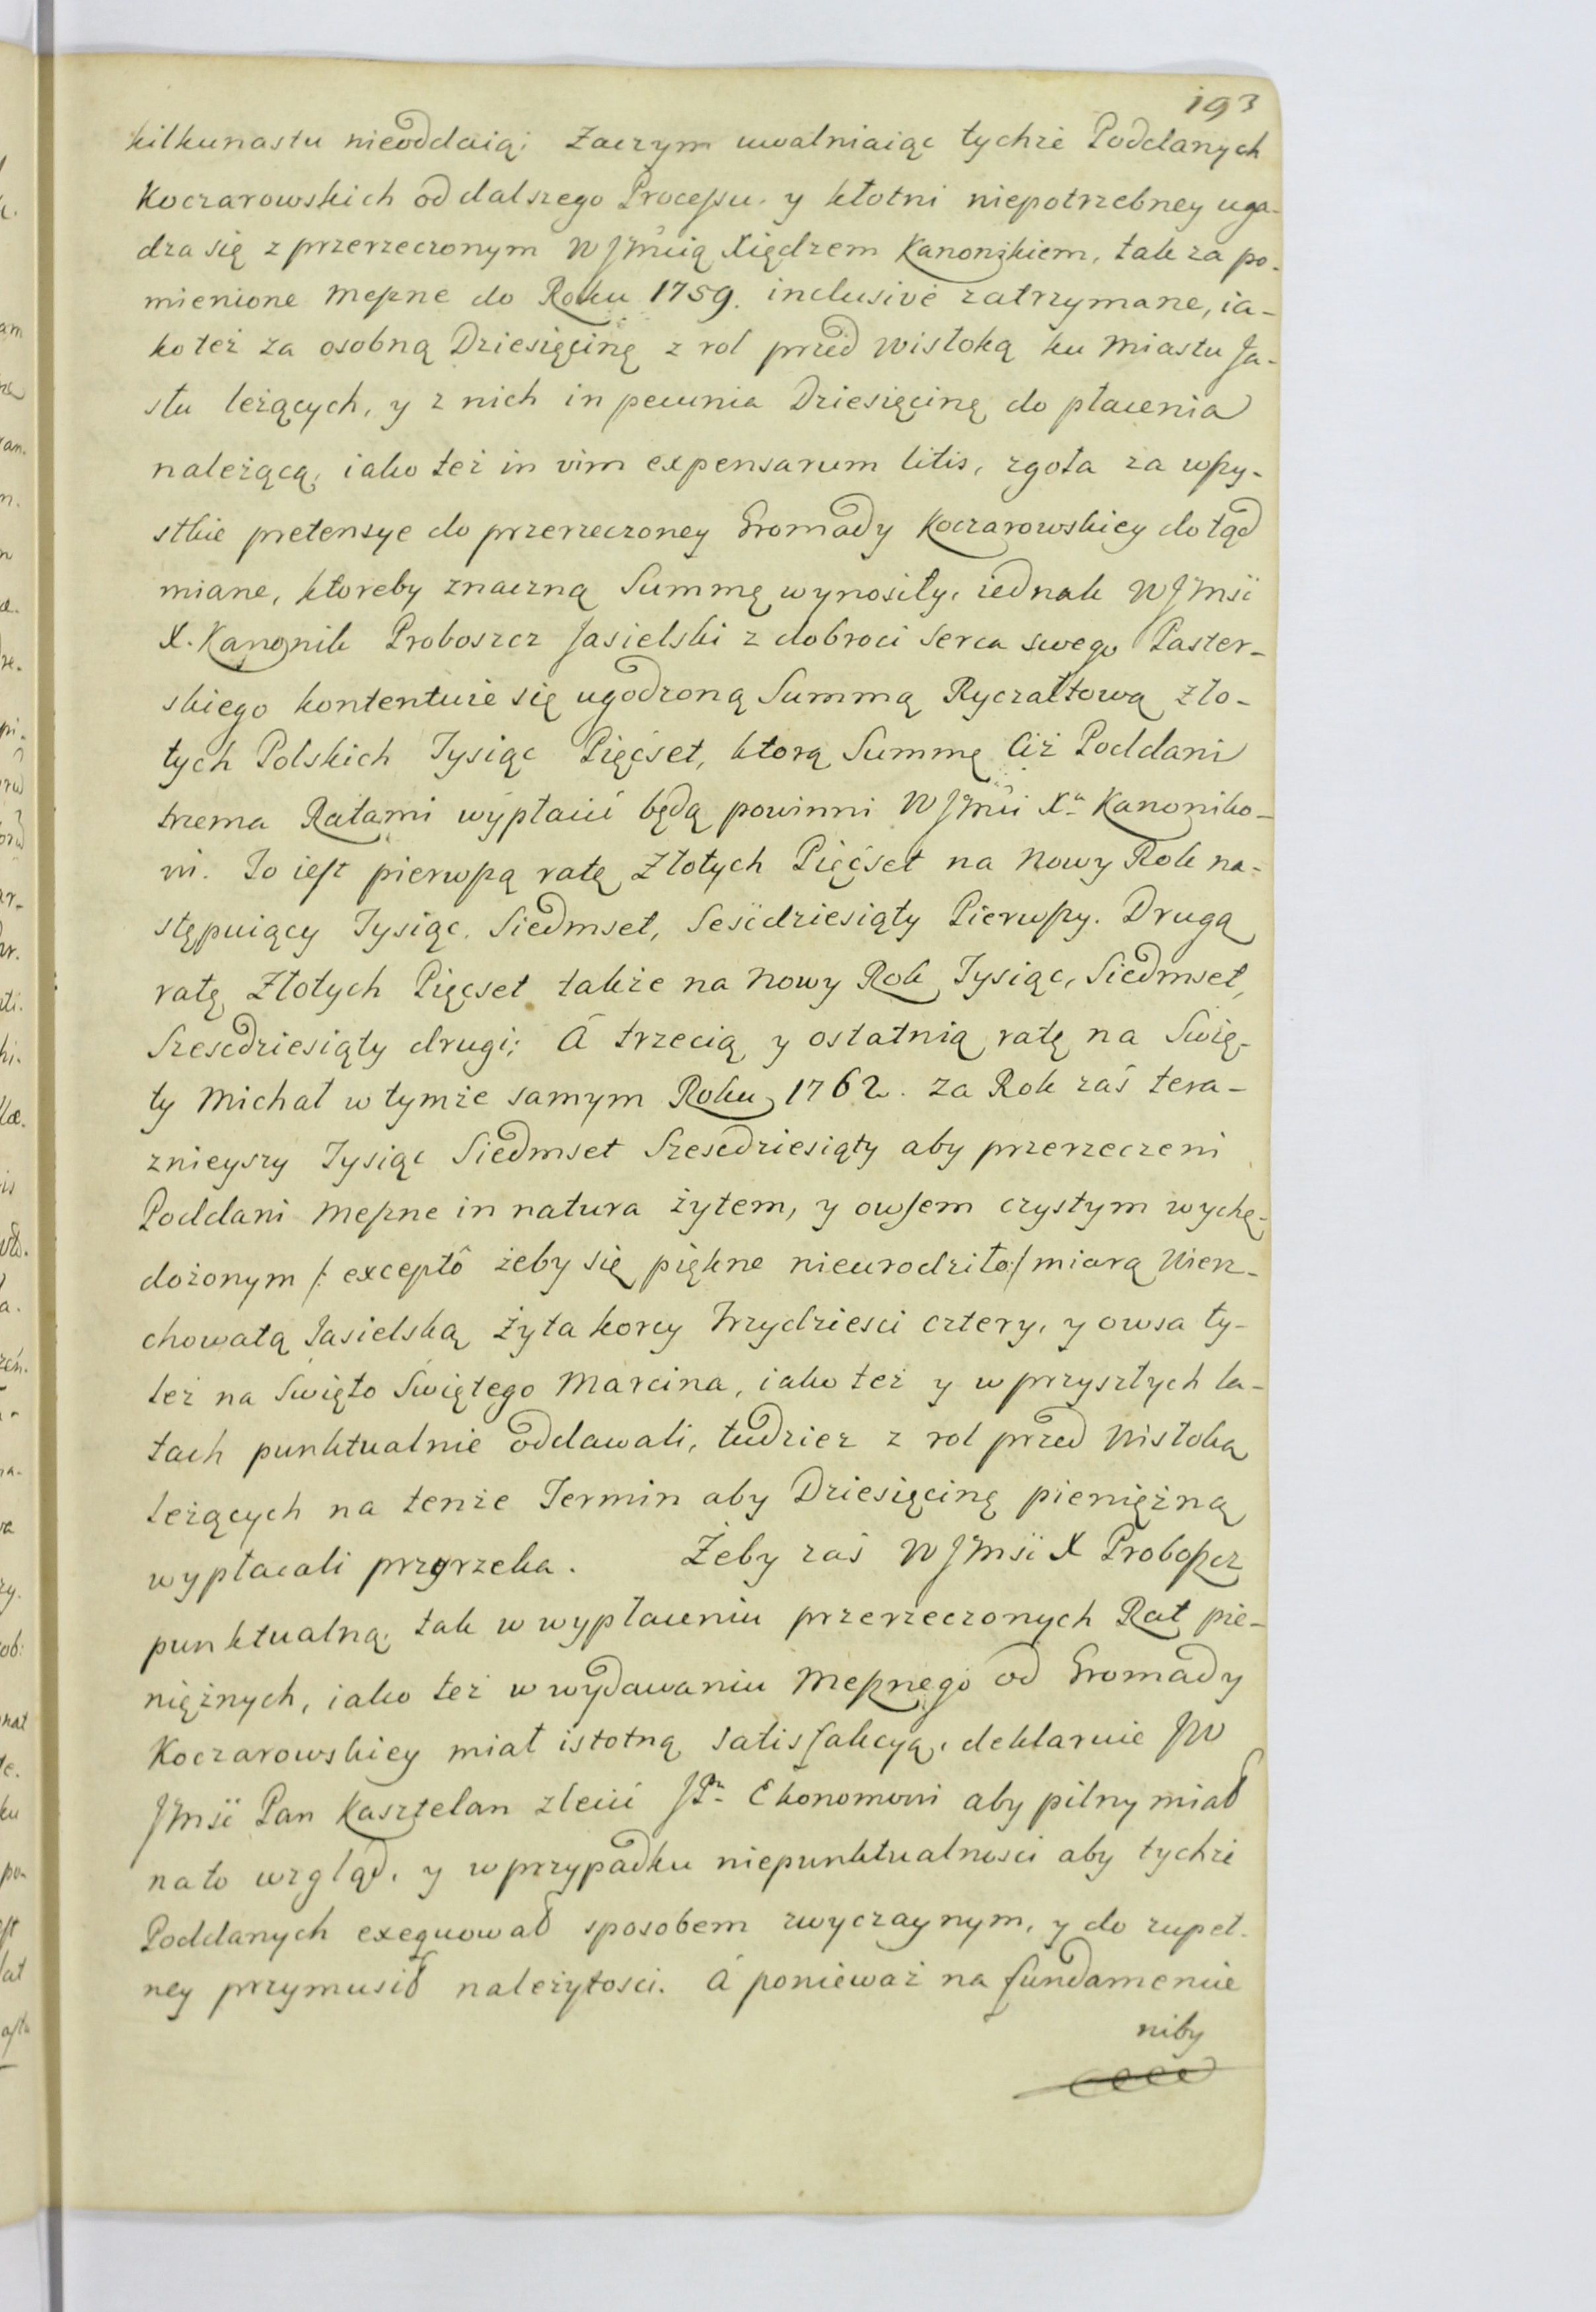 193
kilkunastu nieoddaią; Zaczym uwalniaiąc tychże Poddanych
Koczarowskich od dalszego Processu. y kłotni niepotrzebney uga-
dza się z przerzeczonym WJMcią Xiędzem Kanonikiem, tak za po-
mienione Meszne do Roku 1759. inclusivè zatrzymane, ia-
ko też za osobną Dziesięcinę z rol przed Wisłoką ku Miastu Ja-
słu leżących, y z nich in pecunia Dziesięcinę do płacenia
należącą, iako też in vim expensarum litis, zgoła za wszy-
stkie pretensye do przerzeczoney Gromady Koczarowskiey dotąd
miane, ktoreby znaczną Summę wynosiły, iednak WJMść
X. Kanonik Proboszcz Jasielski z dobroci Serca swego Paster-
skiego kontentuie się ugodzoną Summą Ryczałtową Zło-
tych Polskich Tysiąc Pięćset, ktorą Summę Ciż Poddani
trzema Ratami wypłacić będą powinni WJMci Xu Kanoniko-
wi. To iest pierwszą ratę Złotych Pięćset na Nowy Rok na-
stępuiący Tysiąc, Siedmset, Sesćdziesiąty Pierwszy. Drugą
ratę Złotych Pięcset także na Nowy Rok Tysiąc, Siedmset,
Szescdziesiąty drugi; Á trzecią y ostatnią ratę na Swię-
ty Michał w tymże samym Roku 1762. Za Rok zaś tera-
znieyszy Tysiąc Siedmset Szescdziesiąty aby przerzeczeni
Poddani Meszne in natura żytem, y owsem czystym wychę-
dożonym /: exceptô żeby się piękne nieurodziło:/ miarą Wierz-
chowatą Jasielską Żyta korcy Trzydziesci cztery, y owsa ty-
leż na Swięto Swiętego Marcina, iako też y w przyszłych la-
tach punktualnie oddawali, tudziez z rol przed Wisłoką
leżących na tenże Termin aby Dziesięcinę pieniężną
wypłacali przyrzeka. Żeby zaś WJMść X Proboszcz
punktualną, tak w wypłaceniu przerzeczonych Rat pie-
niężnych, iako też w wydawaniu Mesznego od Gromady
Koczarowskiey miał istotną satisfakcyą, deklaruie JW
JMść Pan Kasztelan zlecić JPu Ekonomowi aby pilny miał
na to wzgląd, y w przypadku niepunktualnosci aby tychże
Poddanych exequował sposobem zwyczaynym, y do zupeł-
ney przymusił należytosci. Á ponieważ na fundamencie
niby